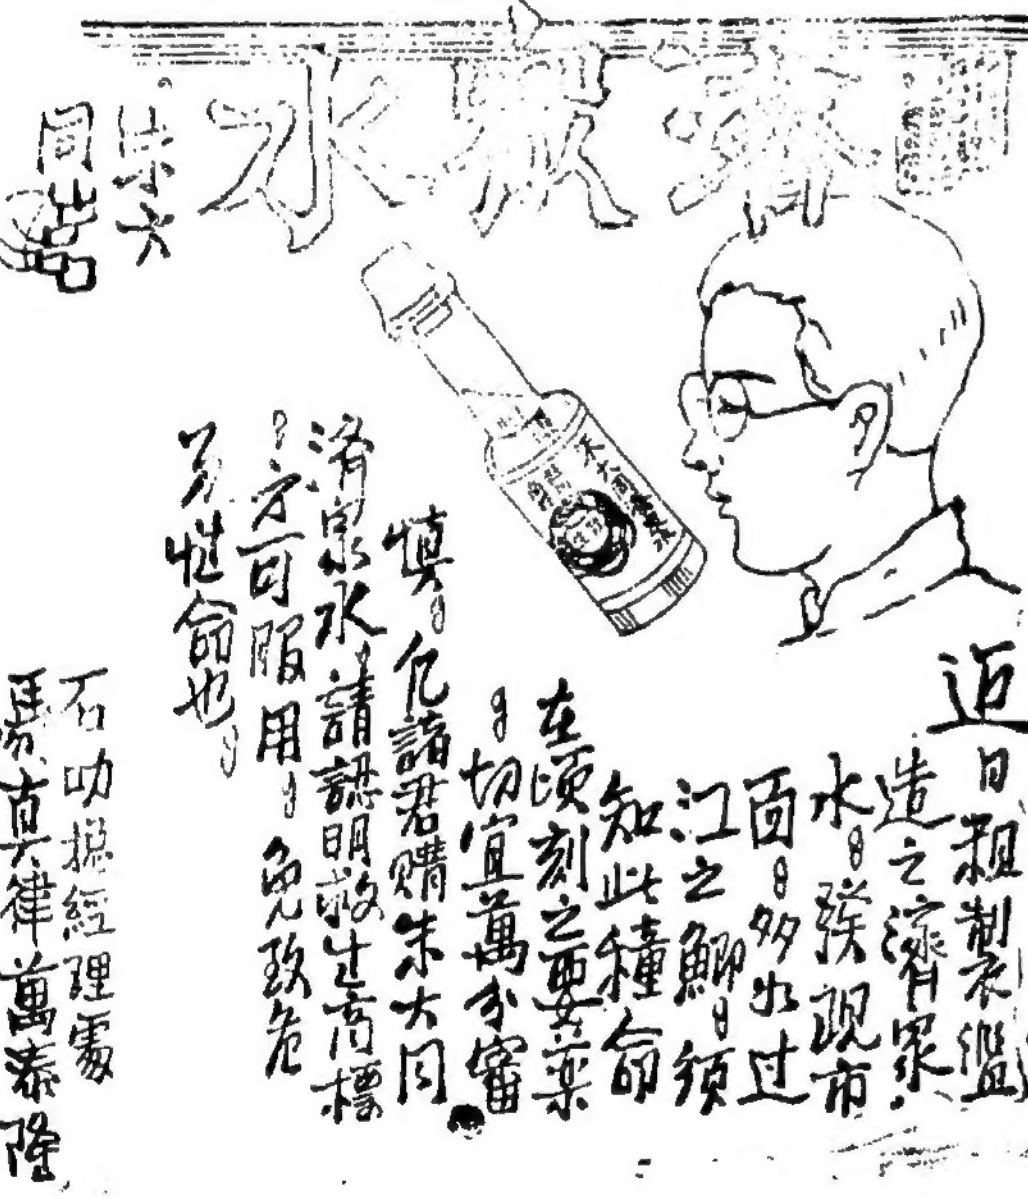 濟眾水
朱大
同
近日粗制裝濫
造之濟眾
水。發現市
面。多如过
江之鯽。須
知此種命
在頃刻之要藥
。切宜萬分審
慎。凡諸君購朱大同
濟眾水。請認明救生商標
。方可服用。免致危
及性命也。
石叻總經理處
馮真律萬泰隆